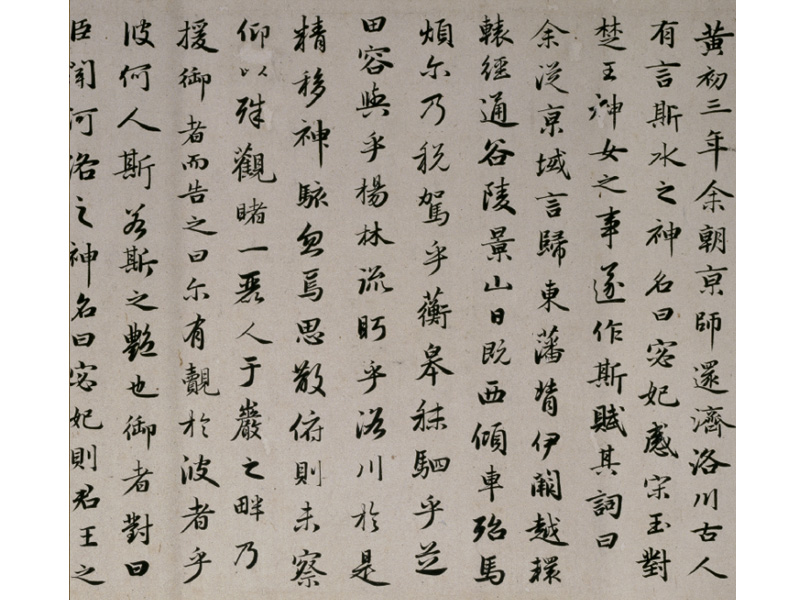 黄初三年余朝京師還濟洛川古人
有言斯水之神名曰宓妃感宋玉對
楚王神女之事遂作斯賦其詞曰
余從京域言歸東藩背伊闕越轘
轅經通谷陵景山日既西傾車殆馬
煩尔乃税駕乎蘅皋秣駟乎芝
田容與乎楊林流眄乎洛川於是
精移神駭忽焉思散俯則未察
仰以殊觀睹一麗人于巖之畔乃
援御者而告之曰尔有覿於彼者乎
彼何人斯若斯之艷也御者對曰
臣聞河洛之神名曰宓妃則君王之